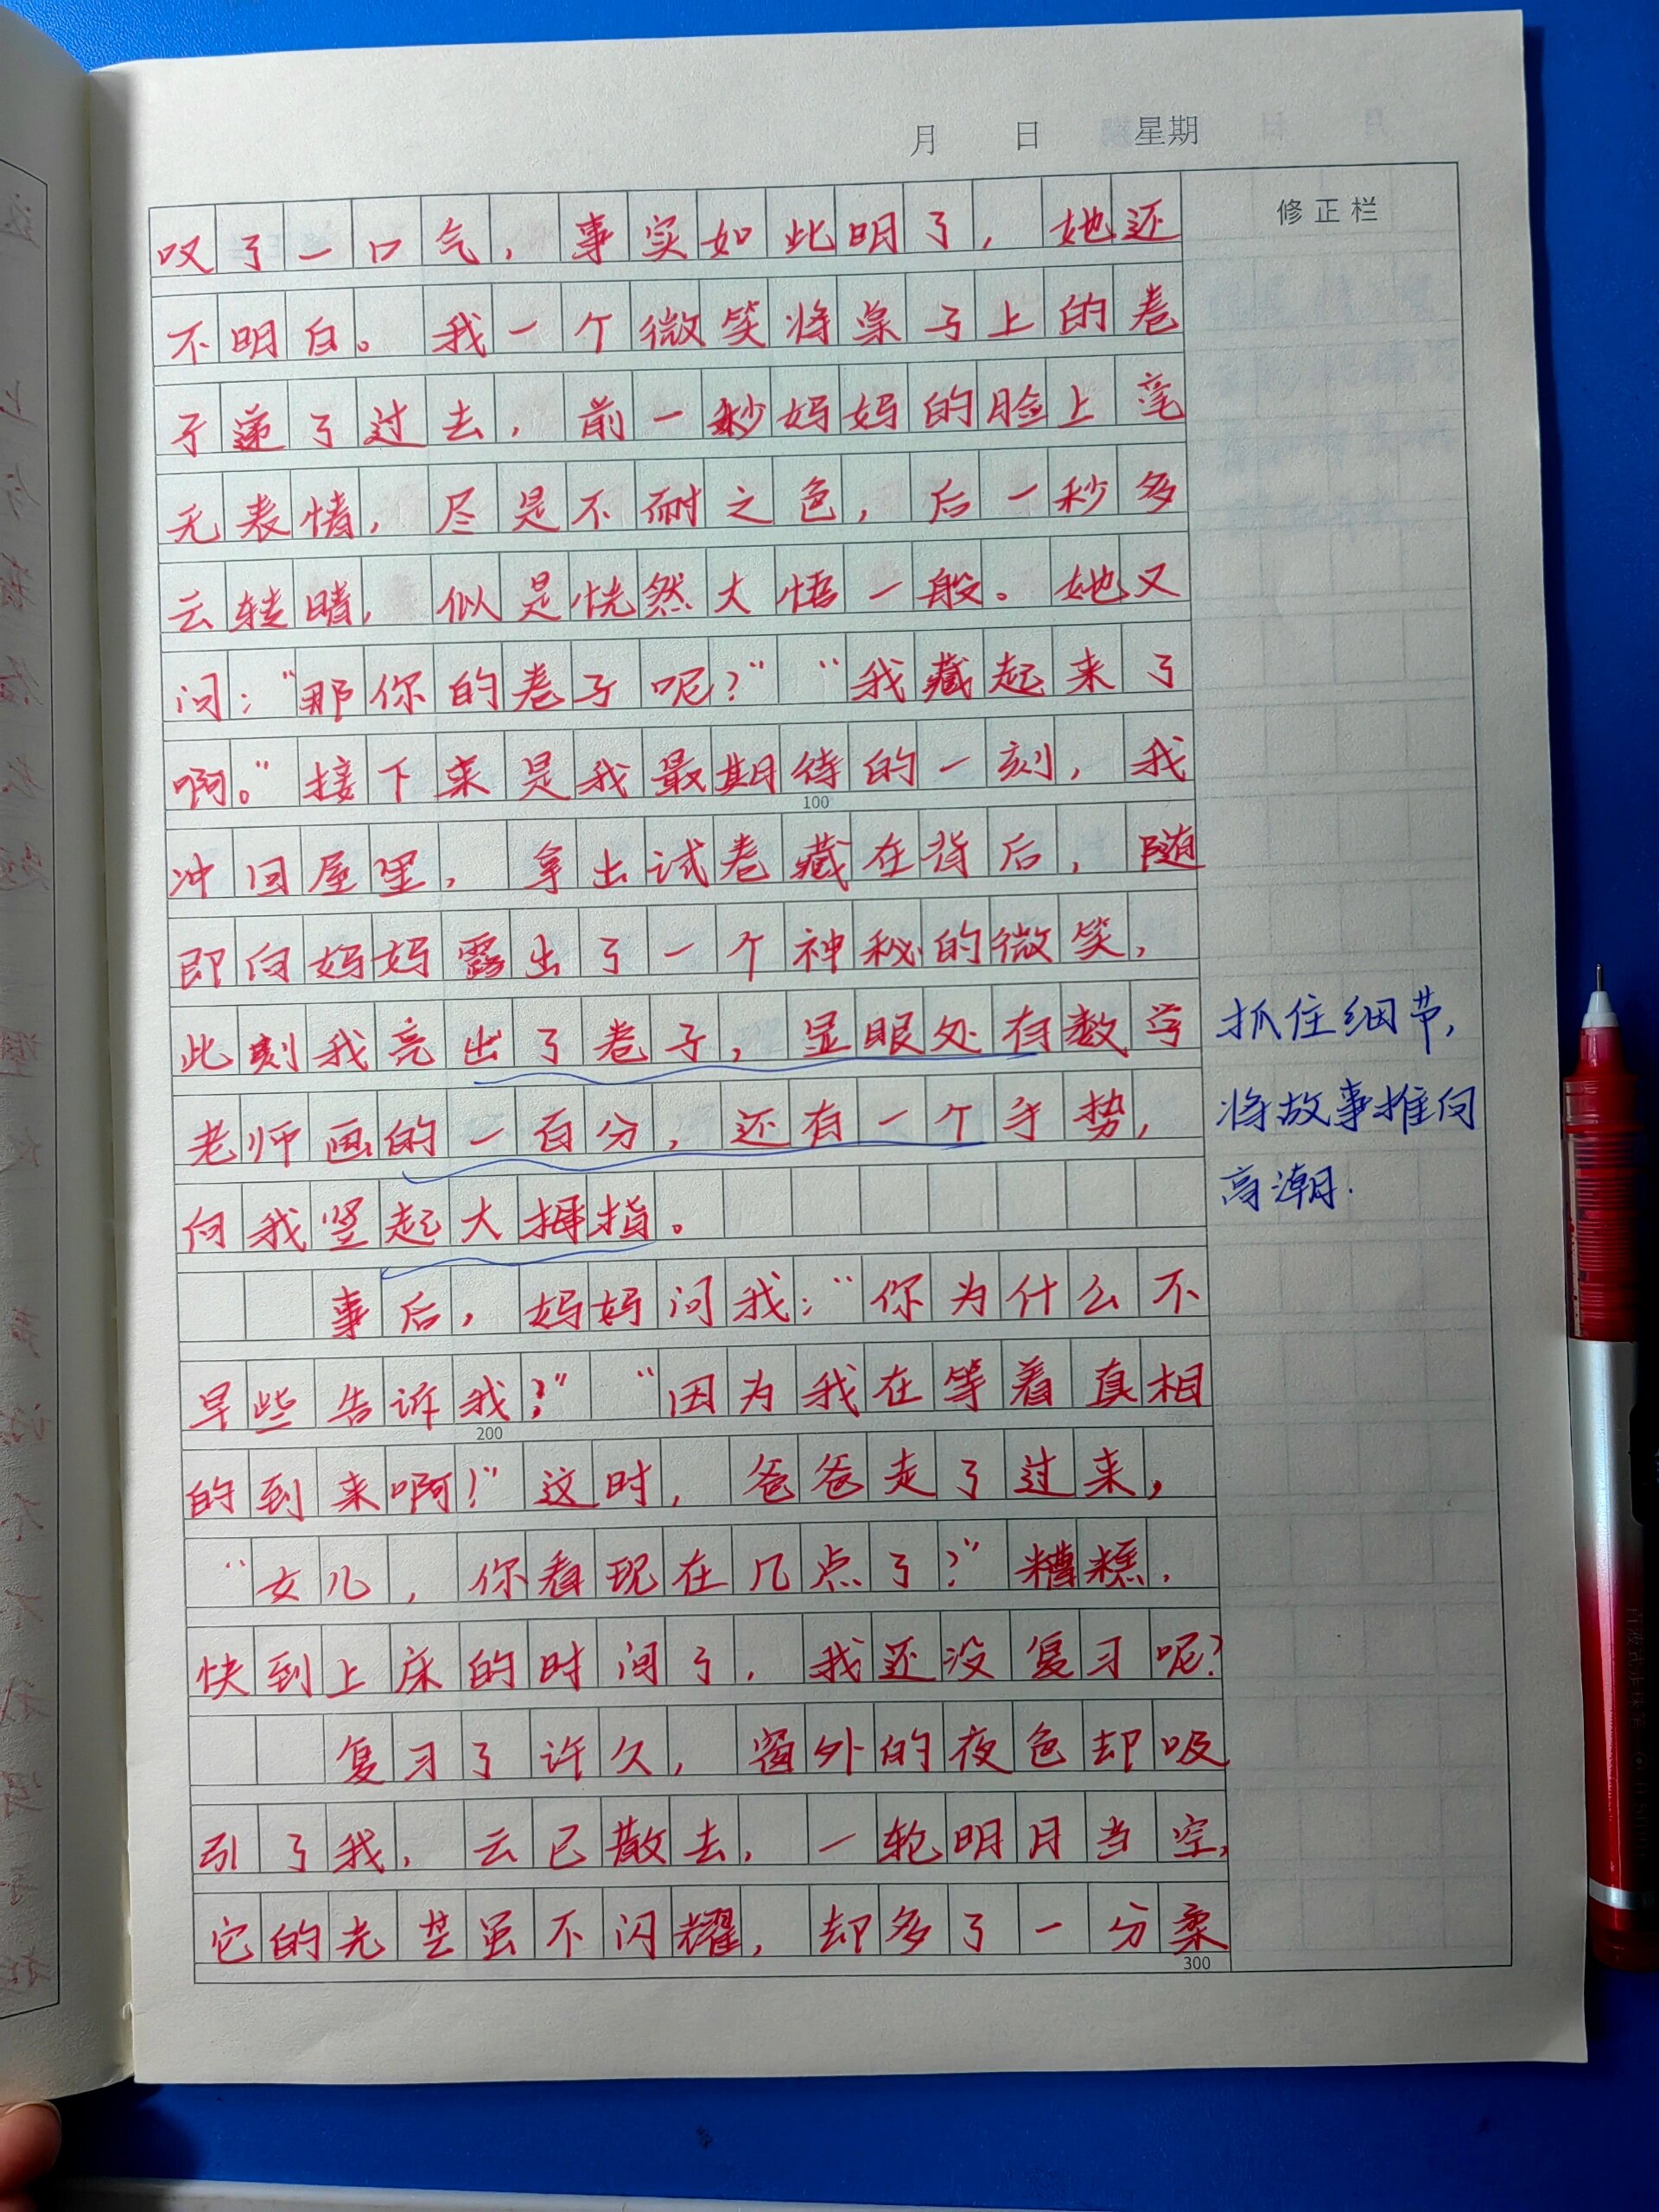 月 日 星期
修正栏
叹了一口气，事实如此明了，她还
不明白。我一个微笑将桌子上的卷
子递了过去，前一秒妈妈的脸上毫
无表情，尽是不耐之色，后一秒多
云转晴，似是恍然大悟一般。她又
问：“那你的卷子呢？”“我藏起来了
啊。”接下来是我最期待的一刻，我
100
冲回屋里，拿出试卷藏在背后，随
即向妈妈露出了一个神秘的微笑，
此刻我亮出了卷子，显眼处有数学
老师画的一百分，还有一个手势，
向我竖起大拇指。
抓住细节，
将故事推向
高潮.
事后，妈妈问我：“你为什么不
早些告诉我？”“因为我在等着真相
200
的到来啊！”这时，爸爸走了过来，
“女儿，你看现在几点了？”糟糕，
快到上床的时间了，我还没复习呢？
复习了许久，窗外的夜色却吸
引了我，云已散去，一轮明月当空，
它的光芒虽不闪耀，却多了一分柔
300